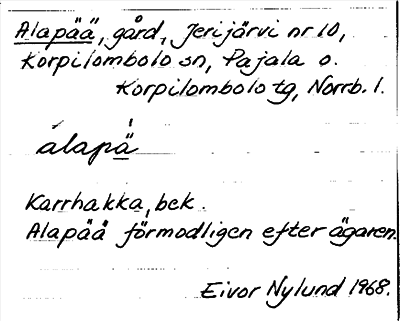 Alapää, gård, Jerijärvi nr 10,
Korpilombolo sn, Pajala o.
Korpilombolo tg, Norrb. l.
álapä̀
Karrhakka, bek.
Alapää förmodligen efter ägaren.
Eivor Nylund 1968.